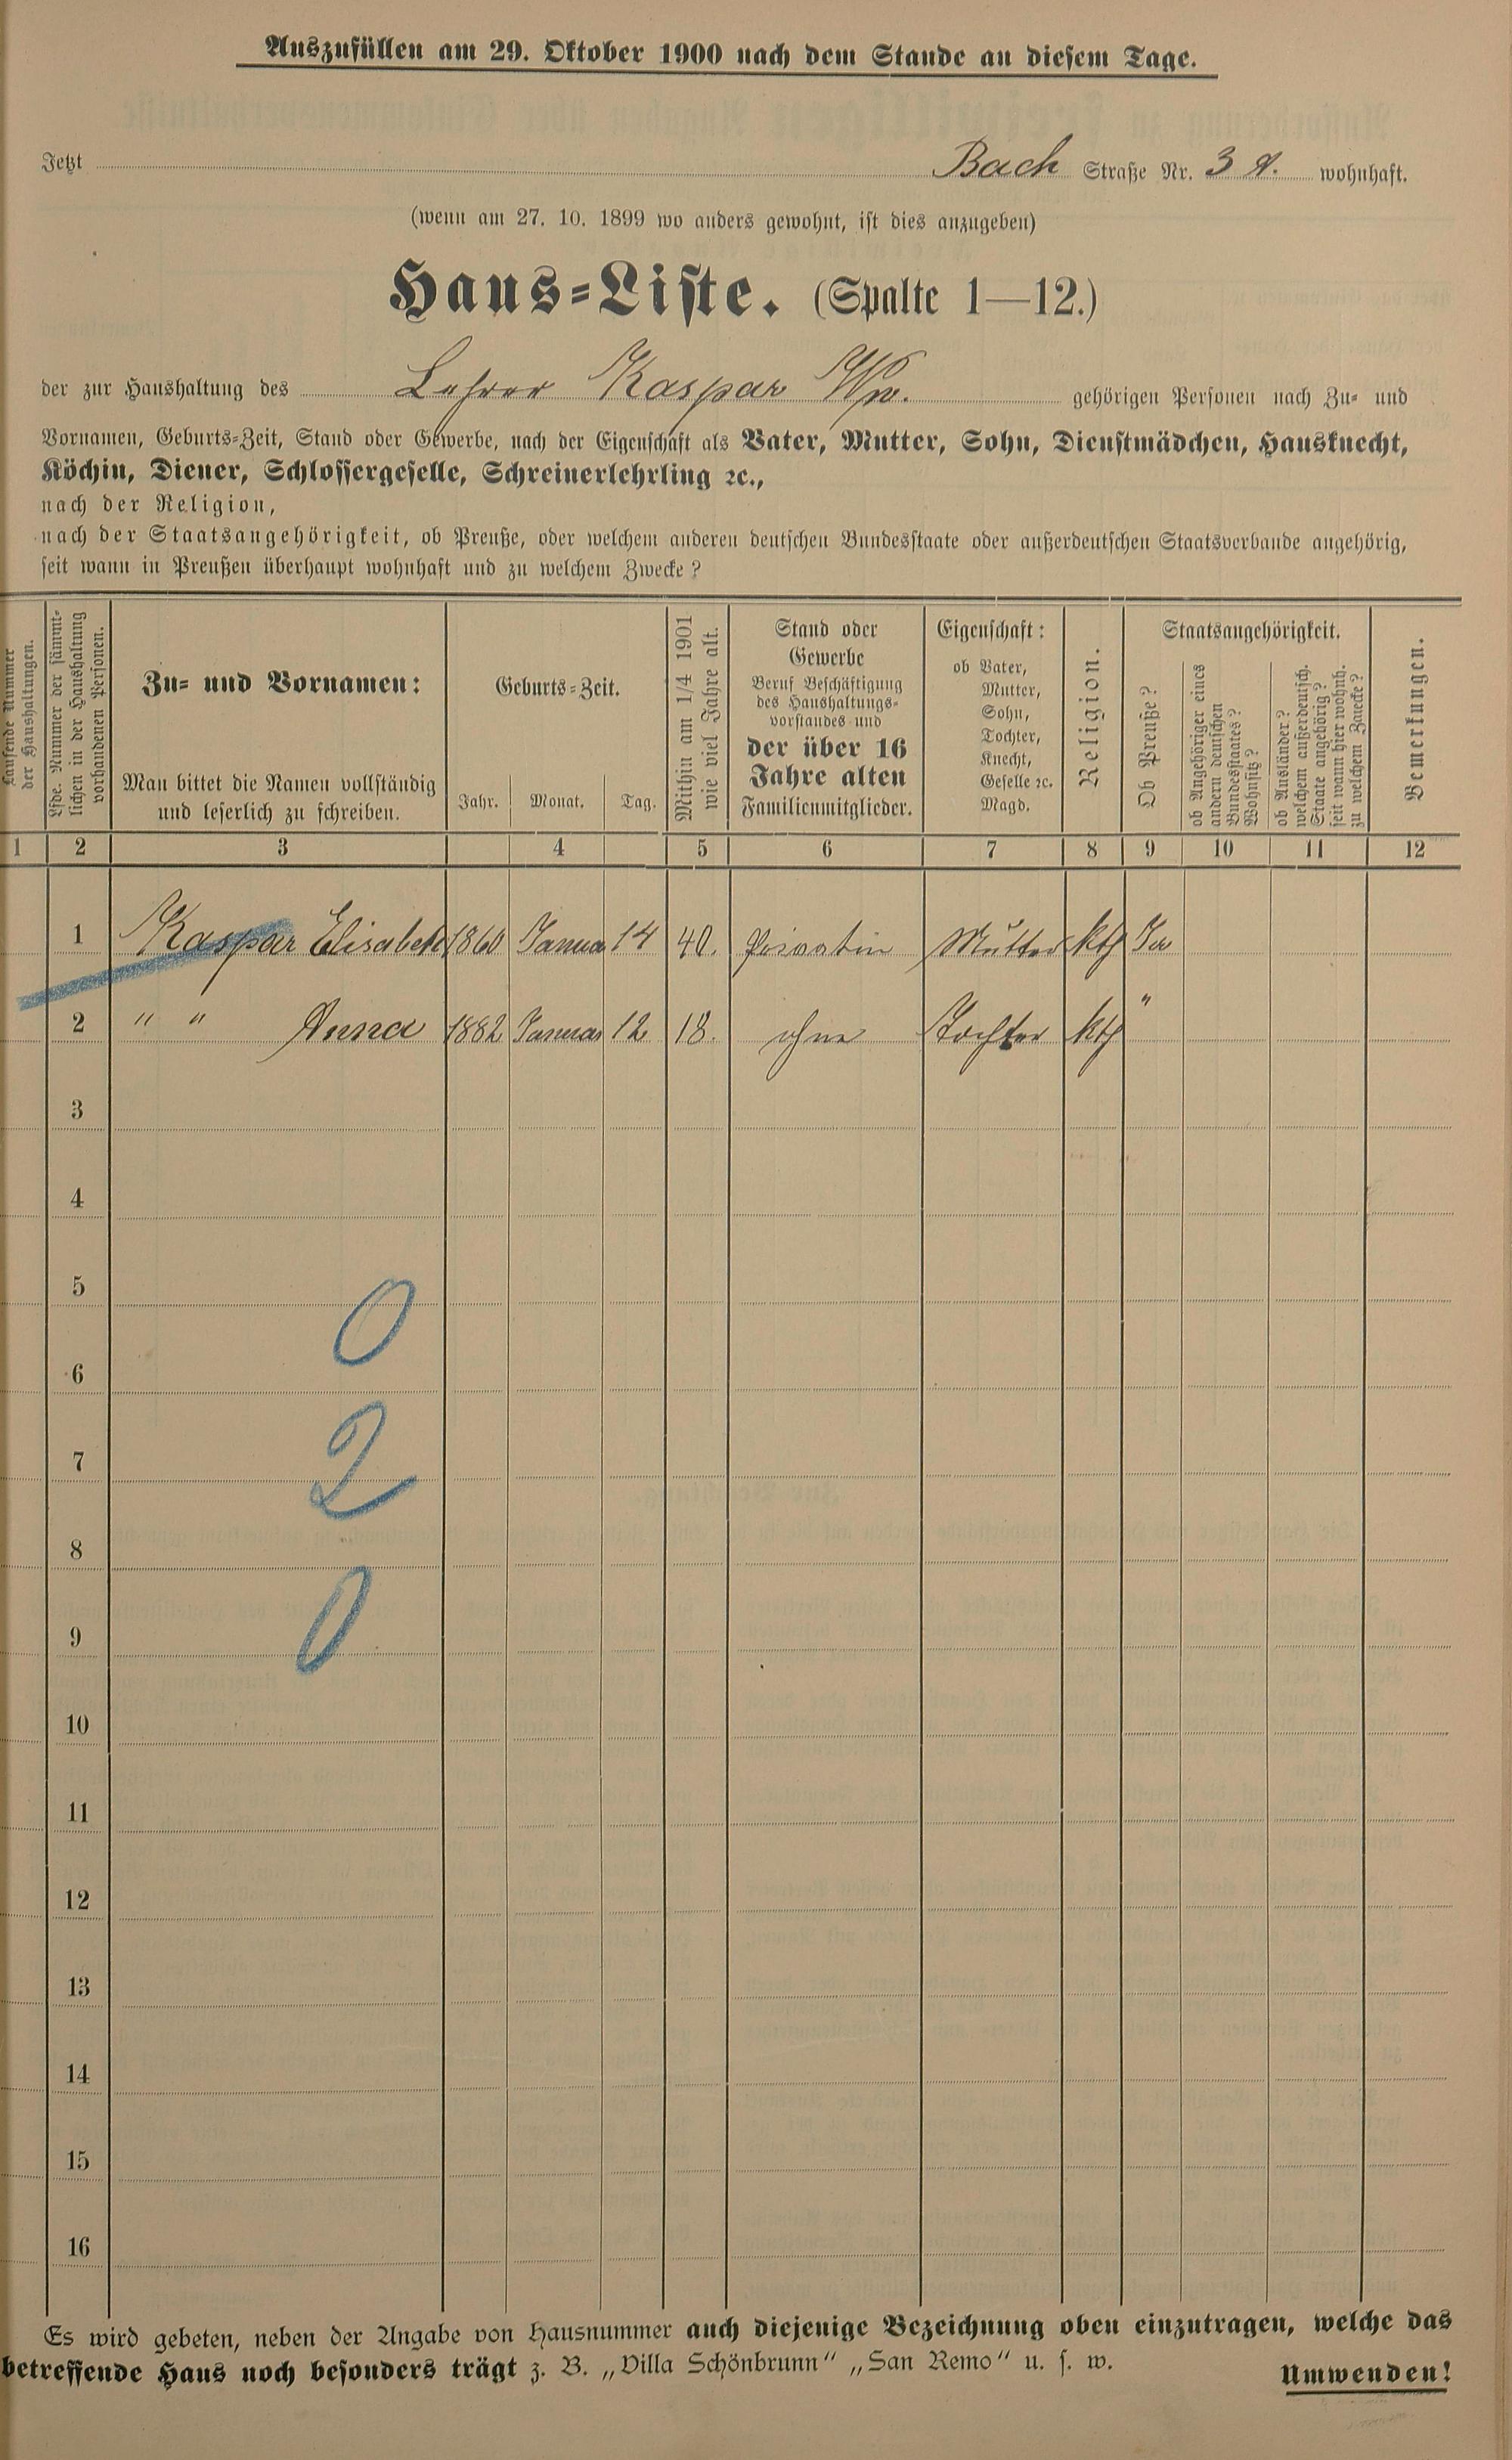 Auszufüllen am 29. Oktober 1900 nach dem Stande an diesem Tage.
Jetzt Bach Straße Nr. 3 a. wohnhaft.
(wenn am 27. 10. 1899 wo anders gewohnt, ist dies anzugeben)
Haus-Liste. (Spalte 1—12.)
der zur Haushaltung des Lehrer Kaspar Ww. gehörigen Personen nach Zu- und
Vornamen, Geburts-Zeit, Stand oder Gewerbe, nach der Eigenschaft als Vater, Mutter, Sohn, Dienstmädchen, Hausknecht,
Köchin, Diener, Schlossergeselle, Schreinerlehrling ꝛc.,
nach der Religion,
nach der Staatsangehörigkeit, ob Preuße, oder welchem anderen deutschen Bundesstaate oder außerdeutschen Staatsverbande angehörig,
seit wann in Preußen überhaupt wohnhaft und zu welchem Zwecke?
Laufende Nummer
der Haushaltungen.
Lfde. Nummer der sämmt-
lichen in der Haushaltung
vorhandenen Personen.
Zu- und Vornamen:
Man bittet die Namen vollständig
und leserlich zu schreiben.
Geburts-Zeit.
Jahr. Monat. Tag.
Mithin am 1/4 1901
wie viel Jahre alt.
Stand oder
Gewerbe
Beruf Beschäftigung
des Haushaltungs-
vorstandes und
der über 16
Jahre alten
Familienmitglieder.
Eigenschaft:
ob Vater,
Mutter,
Sohn,
Tochter,
Knecht,
Geselle ꝛc.
Magd.
Religion.
Staatsangehörigkeit.
Ob Preuße?
ob Angehöriger eines
andern deutschen
Bundesstaates?
Wohnsitz?
ob Ausländer?
welchem außerdeutsch.
Staate angehörig?
seit wann hier wohnh.
zu welchem Zwecke?
Bemerkungen.
1 2 3 4 5 6 7 8 9 10 11 12
1 Kaspar Elisabeth 1860 Januar 14 40. Privatin Mutter kth Ja
2 " " Anna 1882 Januar 12 18. ohne Tochter kth "
3
4
5
0
6
7
2
8
9
0
10
11
12
13
14
15
16
Es wird gebeten, neben der Angabe von Hausnummer auch diejenige Bezeichnung oben einzutragen, welche das
betreffende Haus noch besonders trägt z. B. „Villa Schönbrunn" „San Remo" u. s. w.
Umwenden!